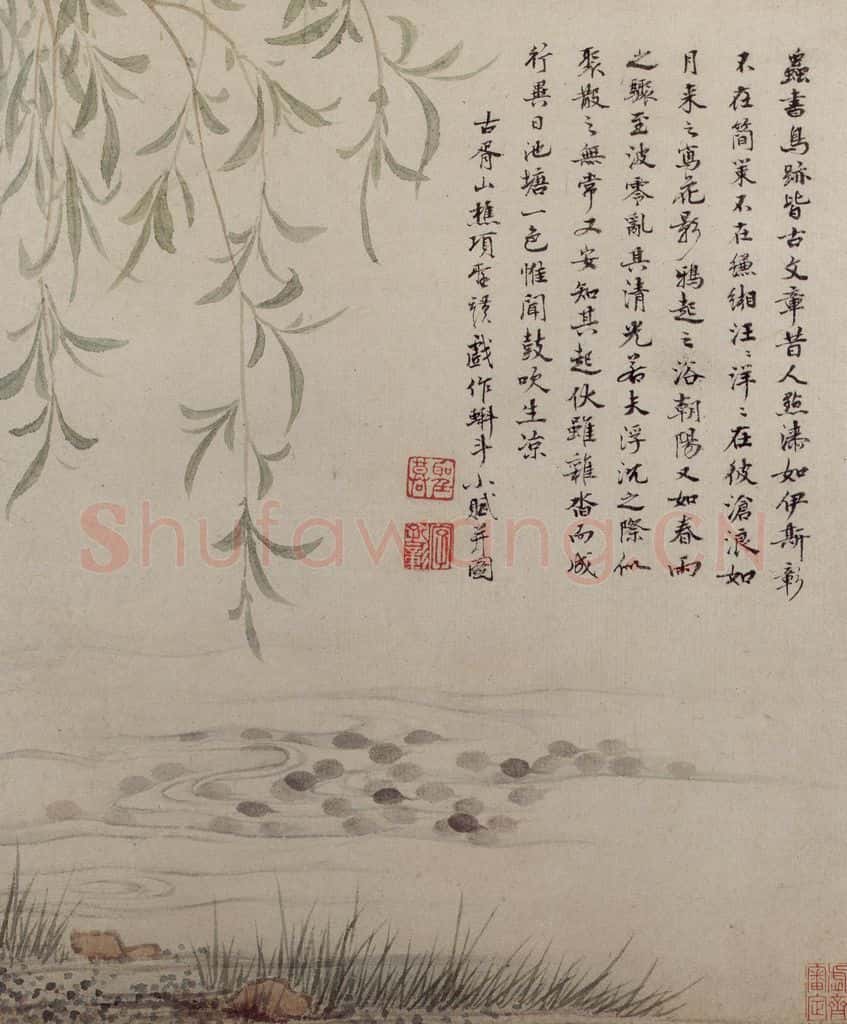 蟲書鳥跡皆古文章昔人點漆如伊斯彰
不在簡策不在縑緗汪〻洋〻在彼滄浪如
月来之寫花影鴉起之浴朝陽又如春雨
之驟至波零亂其清光若夫浮沉之際似
聚散之無常又安知其起伏雖雜沓而成
行異日池塘一色惟聞鼓吹生凉
古胥山樵項聖謨戲作蝌斗小賦并圖
聖謨
字孔彰
虛齋審定
Shufawang.CN